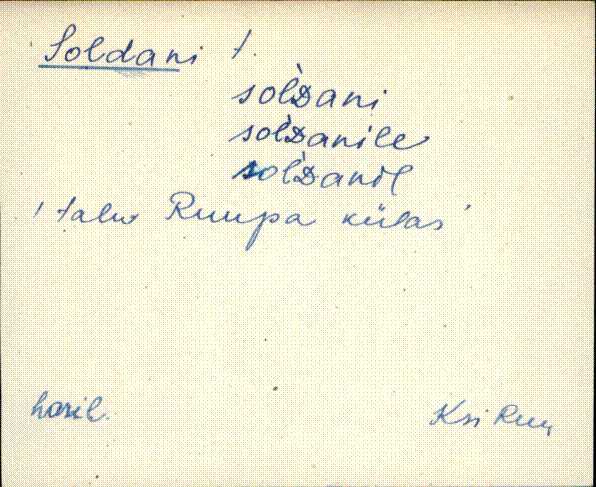 Soldani t.
sol̀Dani
sol̀Danile
sol̀Danil
' talu Ruupa külas '
haril.
Ksi Ruu